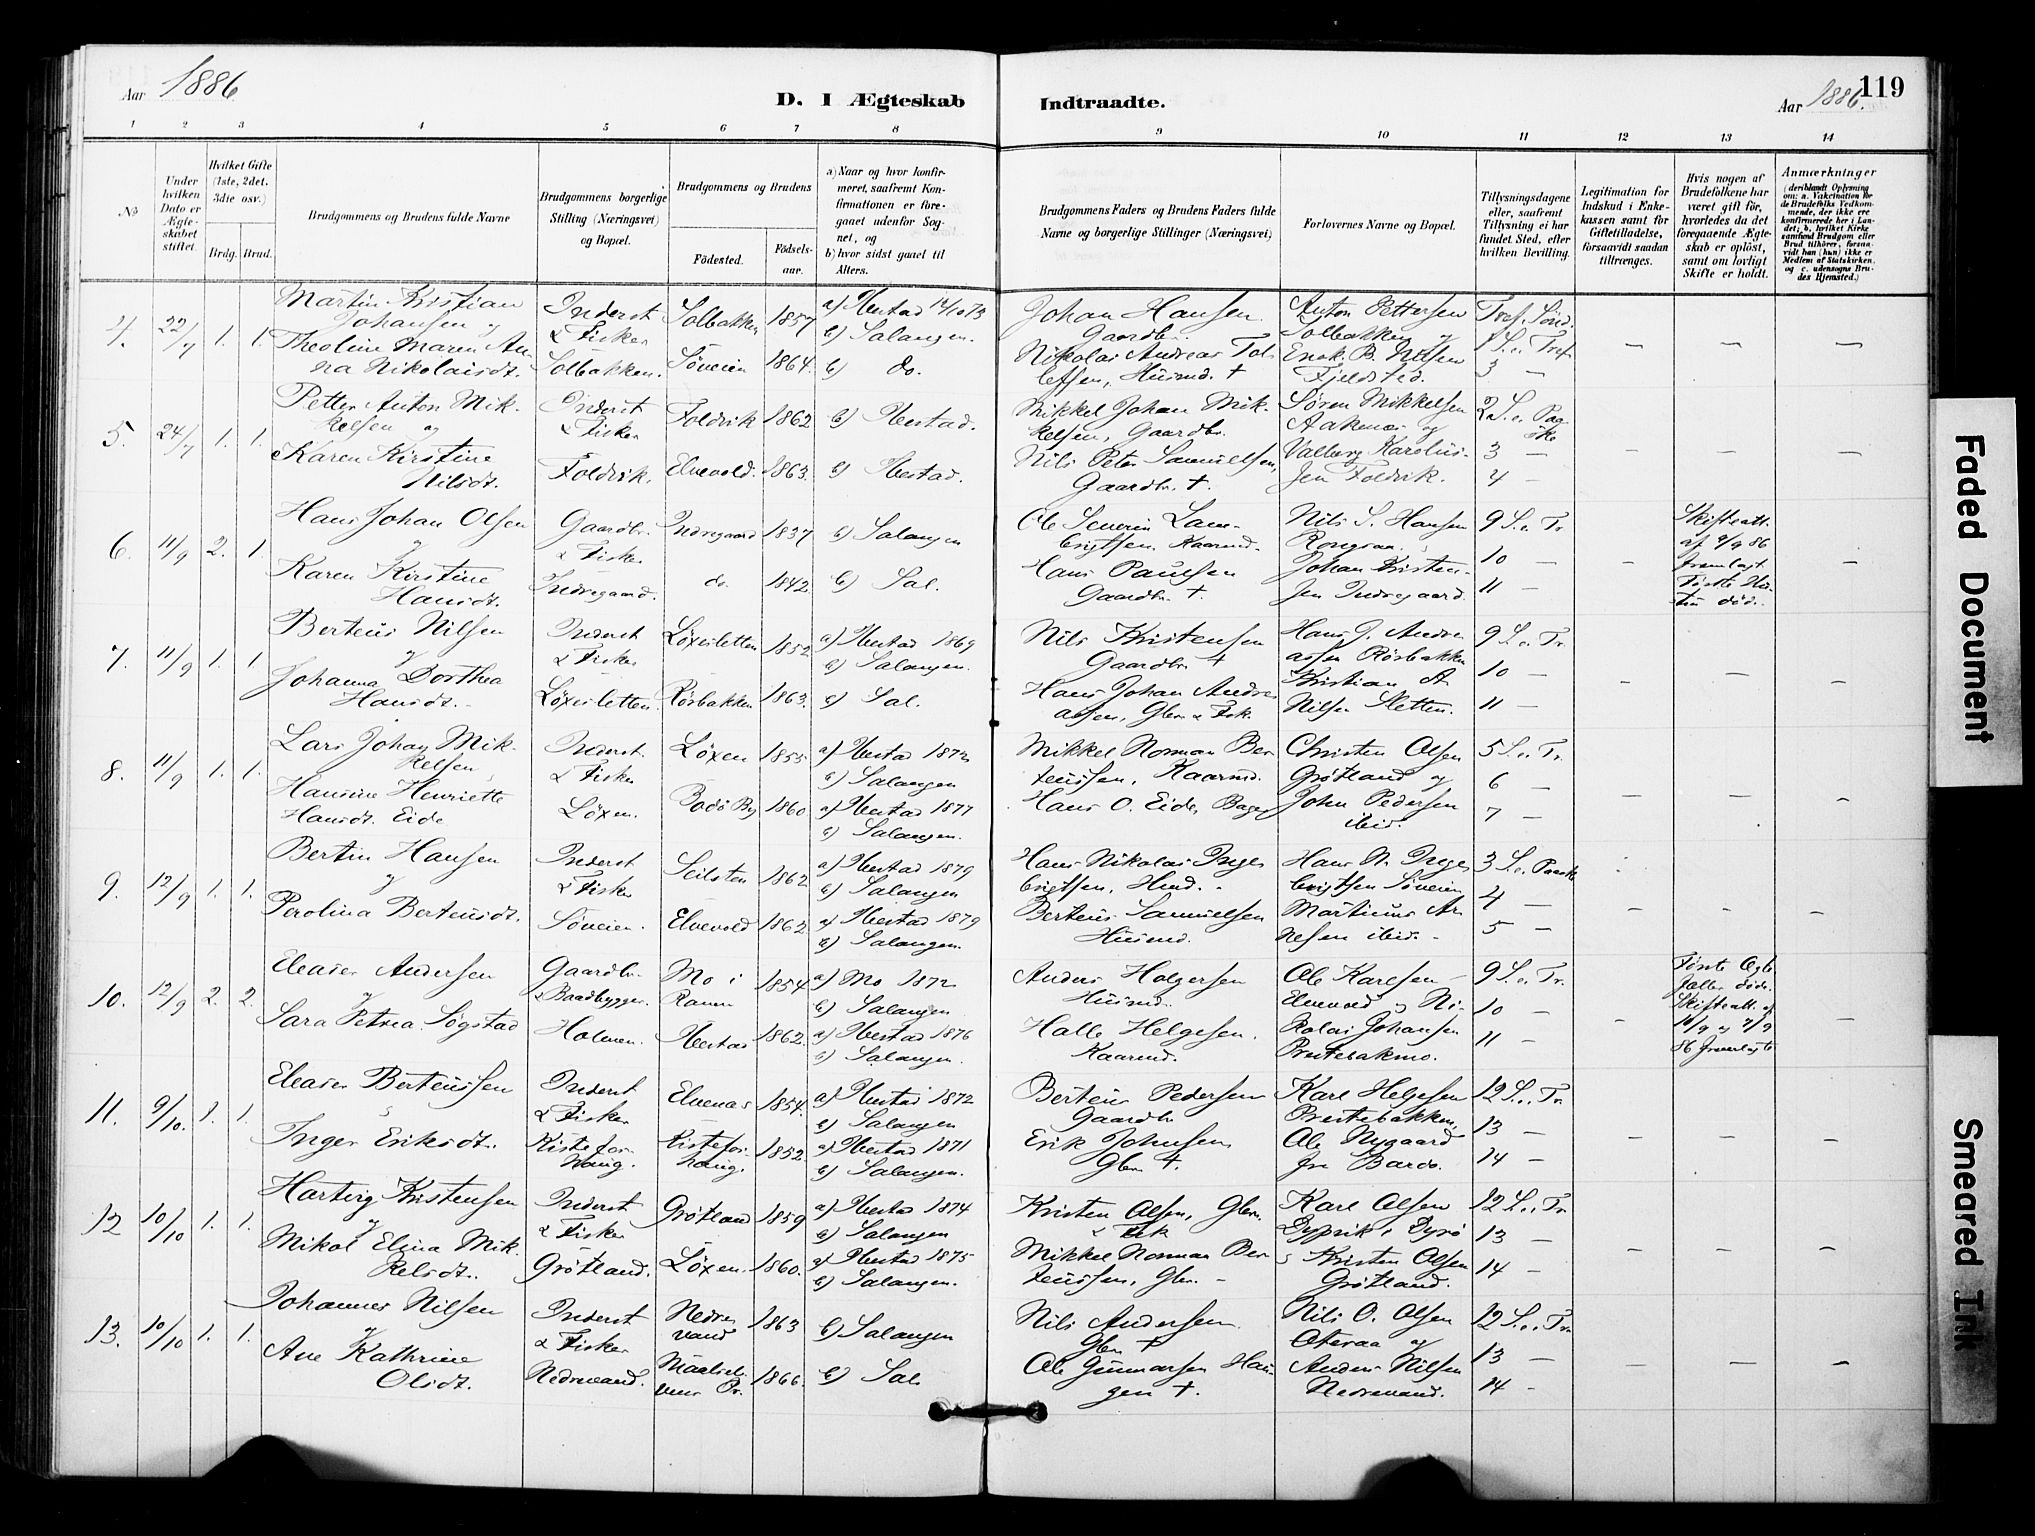 Aar 1886
D. I Ægteskab Indtraadte.
Aar 1886.
119
1 2 3 4 5 6 7 8 9 10 11 12 13 14
No
Under hvilken Dato er Ægteskabet stiftet.
Hvilket Gifte (1ste, 2det. 3die osv.)
Brdg. Brud.
Brudgommens og Brudens fulde Navne
Brudgommens borgerlige Stilling (Næringsvei) og Bopæl.
Brudgommens og Brudens
Födested.
Födsels-aar.
a) Naar og hvor konfirmeret, saafremt Konfirmationen er foregaaet udenfor Sognet, og
b) hvor sidst gaael til Alters.
Brudgommens Faders og Brudens Faders fulde Navne og borgerlige Stillinger (Næringsvei)
Forlovernes Navne og Bopæl.
Tillysningsdagene eller, saafremt Tillysning ei har fundet Sted, efter hvilken Bevilling.
Legitimation for Indskud i Enkekassen samt for Giftetilladelse, forsaavidt saadan tiltrænges.
Hvis nogen af Brudefolkene har været gift før, hvorledes da det foregaaende Ægteskab er oplöst, samt om lovligt Skifte er holdt.
Anmærkninger
(deriblandt Oplysning om: a. Vakcination for de Brudefolks Vedkommende, der ikke ere konfirmerede her i Landet; b. hvilket Kirkesamfund Brudgom eller Brud tilhörer, forsaavidt han (hun) ikke er Medlem af Statskirken, og c. udensogns Brudes Hjemsted.)
4. 22/7 1. 1.
Martin Kristian Johansen og
Theoline Maren Anna Nikolaisdt.
Inderst & Fisker
Solbakken.
Solbakken 1857
Søveien 1864.
a) Ibestad 14/10 73
b) Salangen.
b) do.
Johan Hansen Gaardbr.
Nikolai Andreas Tollefsen, Husmd. +
Anton Pettersen Solbakken og
Enok B. Nilsen Fjeldsted.
Tref. Sönd.
1 S. e. Tref.
3 —
5. 24/7 1. 1.
Petter Anton Mikkelsen og
Karen Kirstine Nilsdt.
Inderst & Fisker
Foldvik.
Foldvik 1862
Elvevold. 1863.
b) Ibestad.
b) Ibestad.
Mikkel Johan Mikkelsen, Gaardbr.
Nils Peter Samuelsen, Gaardbr. +
Søren Mikkelsen Aakenes og
Valberg Karoliusen Foldvik.
2 S. e. Paaske
3 —
4 —
6. 11/9 2. 1.
Hans Johan Olsen og
Karen Kirstine Hansdt.
Gaardbr. & Fisker
Indregaard.
Indregaard 1837
do. 1842.
b) Salangen
b) Sal.
Ole Severin Lambrigtsen. Kaarmd.
Hans Paulsen Gaardbr. +
Nils S. Hansen
Johan Kristensen Indregaard.
9 S. e. Tr.
10 —
11 —
Skifteatt. af 9/9 86 fremlagt. Første Hustru død.
7. 11/9 1. 1
Berteus Nilsen og
Johanna Dorthea Hansdt.
Inderst & Fisker
Løxesletten.
Løxesletten 1852
Rørbakken 1863.
a) Ibestad 1869
b) Salangen.
b) Sal.
Nils Kristensen Gaardbr. +
Hans Johan Andreassen, Gbr. & Fisk.
Hans J. Andreassen Rørbakken
Kristian A. Nilsen Sletten.
9 S. e. Tr.
10 —
11 —
8. 11/9 1. 1.
Lars Johan Mikkelsen
Hansine Henriette Hansdt. Eide
Inderst. & Fisker
Løxen.
Løxen 1855
Bodø By 1860
a) Ibestad 1872
b) Salangen
a) Ibestad 1877
b) Salangen.
Mikkel Norman Berteussen, Kaarmd.
Hans O. Eide, Bager
Christen Olsen Grøtland og
John Pedersen ibid.
5 S. e. Tr.
6 —
7 —
9. 12/9 1. 1.
Bertin Hansen og
Perolina Berteusdt.
Inderst & Fisker
Søveien.
Seilsten 1862
Elvevold 1862.
a) Ibestad 1879
b) Salangen
a) Ibestad 1879
b) Salangen.
Hans Nikolai Ingebrigtsen, Husmd.
Berteus Samuelsen Husmd.
Hans N. Ingebrigtsen Søveien
Martinus Arnesen ibid.
3 S. e. Paaske
4 —
5 —
10. 12/9 2. 2.
Eleaser Andersen og
Sara Petrea Søgstad
Gaardbr. & Baadbygger.
Holmen.
Mo i Ranen 1854
Ibestad 1862.
a) Mo 1872
b) Salangen
a) Ibestad 1876
b) Salangen.
Anders Holgersen Husmd.
Halle Helgesen. Kaarmd.
Ole Karlsen Elvevold og
Nikolai Johansen Prestebakmo.
9 S. e. Tr.
10 —
11 —
Første Ægtefæller døde. Skifteatt. af 10/9 og 9/9 86 fremlagte
11. 9/10. 1. 1.
Eleaser Berteussen
Inger Eriksdt.
Inderst & Fisker
Kistefoshaug.
Elvenes 1854.
Kistefoshaug. 1852.
a) Ibestad 1872
b) Salangen
a) Ibestad 1871
b) Salangen.
Berteus Pedersen Gaardbr.
Erik Johnsen Gbr. +
Karl Helgesen Prestebakken,
Ole Nygaard fra Bardo.
12 S. e. Tr.
13 —
14 —
12 10/10 1. 1.
Hartvig Kristensen og
Mikol Elena Mikkelsdt.
Inderst & Fisker
Grøtland.
Grøtland 1859
Løxen. 1860.
a) Ibestad 1874
b) Salangen
a) Ibestad 1875
b) Salangen.
Kristen Olsen, Gbr. & Fisk
Mikkel Norman Berteussen, Gbr. —
Karl Olsen Dypvik i Dyrø
Kristen Olsen Grøtland.
12 S. e. Tr.
13 —
14 —
13. 10/10 1. 1.
Johannes Nilsen og
Ane Kathrine Olsdt.
Inderst & Fisker
Nedrevand.
Nedrevand 1863
Maalselvens Pr. 1866.
b) Salangen
b) Sal.
Nils Andersen. Gbr. +
Ole Gunnarsen Haugen +.
Nils O. Olsen Oteraa og
Anders Nilsen Nedrevand.
12 S. e. Tr.
13 —
14 —
Faded Document
Smeared Ink